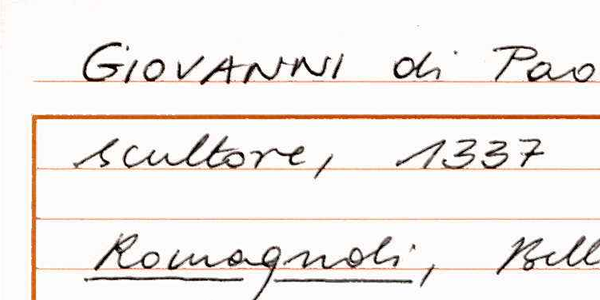 GIOVANNI di Pao
scultore, 1337
Romagnoli, Bell